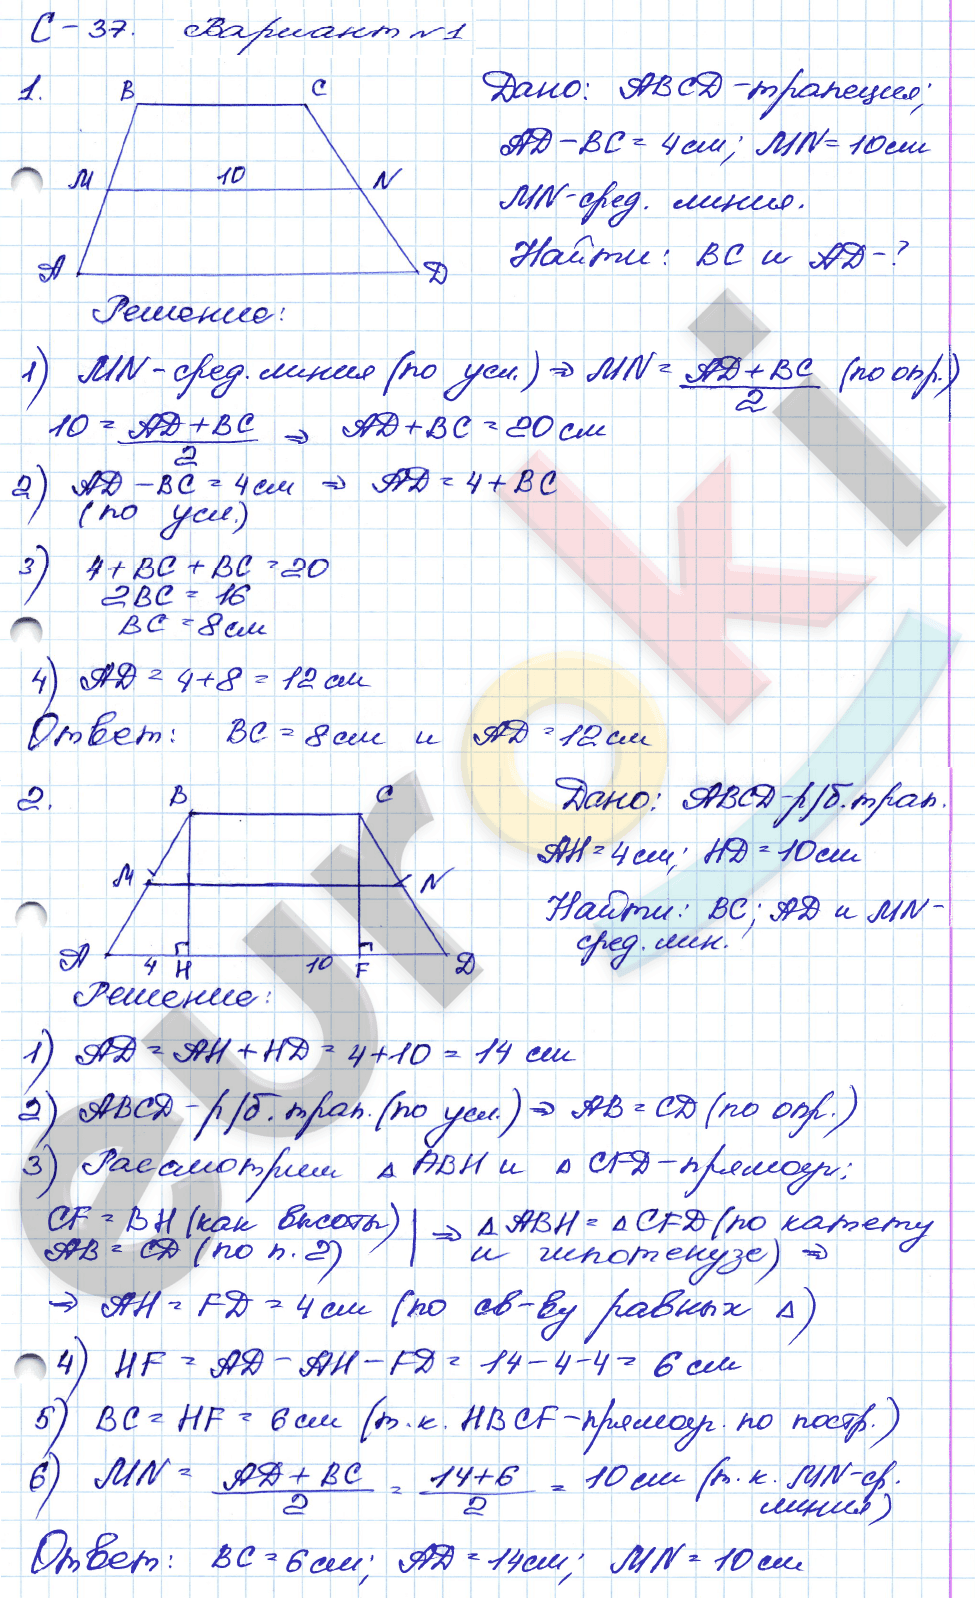 С-37. Вариант №1
1.
B C
M 10 N
A D
Дано: ABCD-трапеция;
AD-BC=4см; MN=10см
MN-сред. линия.
Найти: BC и AD-?
Решение:
1) MN-сред. линия (по усл.) ⇒ MN = (AD+BC)/2 (по опр.)
10 = (AD+BC)/2 ⇒ AD+BC=20см
2) AD-BC=4см ⇒ AD=4+BC
(по усл.)
3) 4+BC+BC=20
2BC=16
BC=8см
4) AD=4+8=12см
Ответ: BC=8см и AD=12см
2.
B C
M N
A 4 H 10 F D
Дано: ABCD-р/б. трап.
AH=4см; HD=10см
Найти: BC; AD и MN-
сред. лин.
Решение:
1) AD=AH+HD=4+10=14 см
2) ABCD-р/б. трап. (по усл.) ⇒ AB=CD (по опр.)
3) Рассмотрим △ ABH и △ CFD-прямоуг;
CF=BH (как высоты) | ⇒ △ABH=△CFD (по катету
AB=CD (по п. 2) | и гипотенузе) ⇒
⇒ AH=FD=4см (по св-ву равных △)
4) HF=AD-AH-FD=14-4-4=6см
5) BC=HF=6см (т.к. HBCF-прямоуг. по постр.)
6) MN = (AD+BC)/2 = (14+6)/2 = 10см (т.к. MN-ср.
линия)
Ответ: BC=6см; AD=14см; MN=10см
euroki